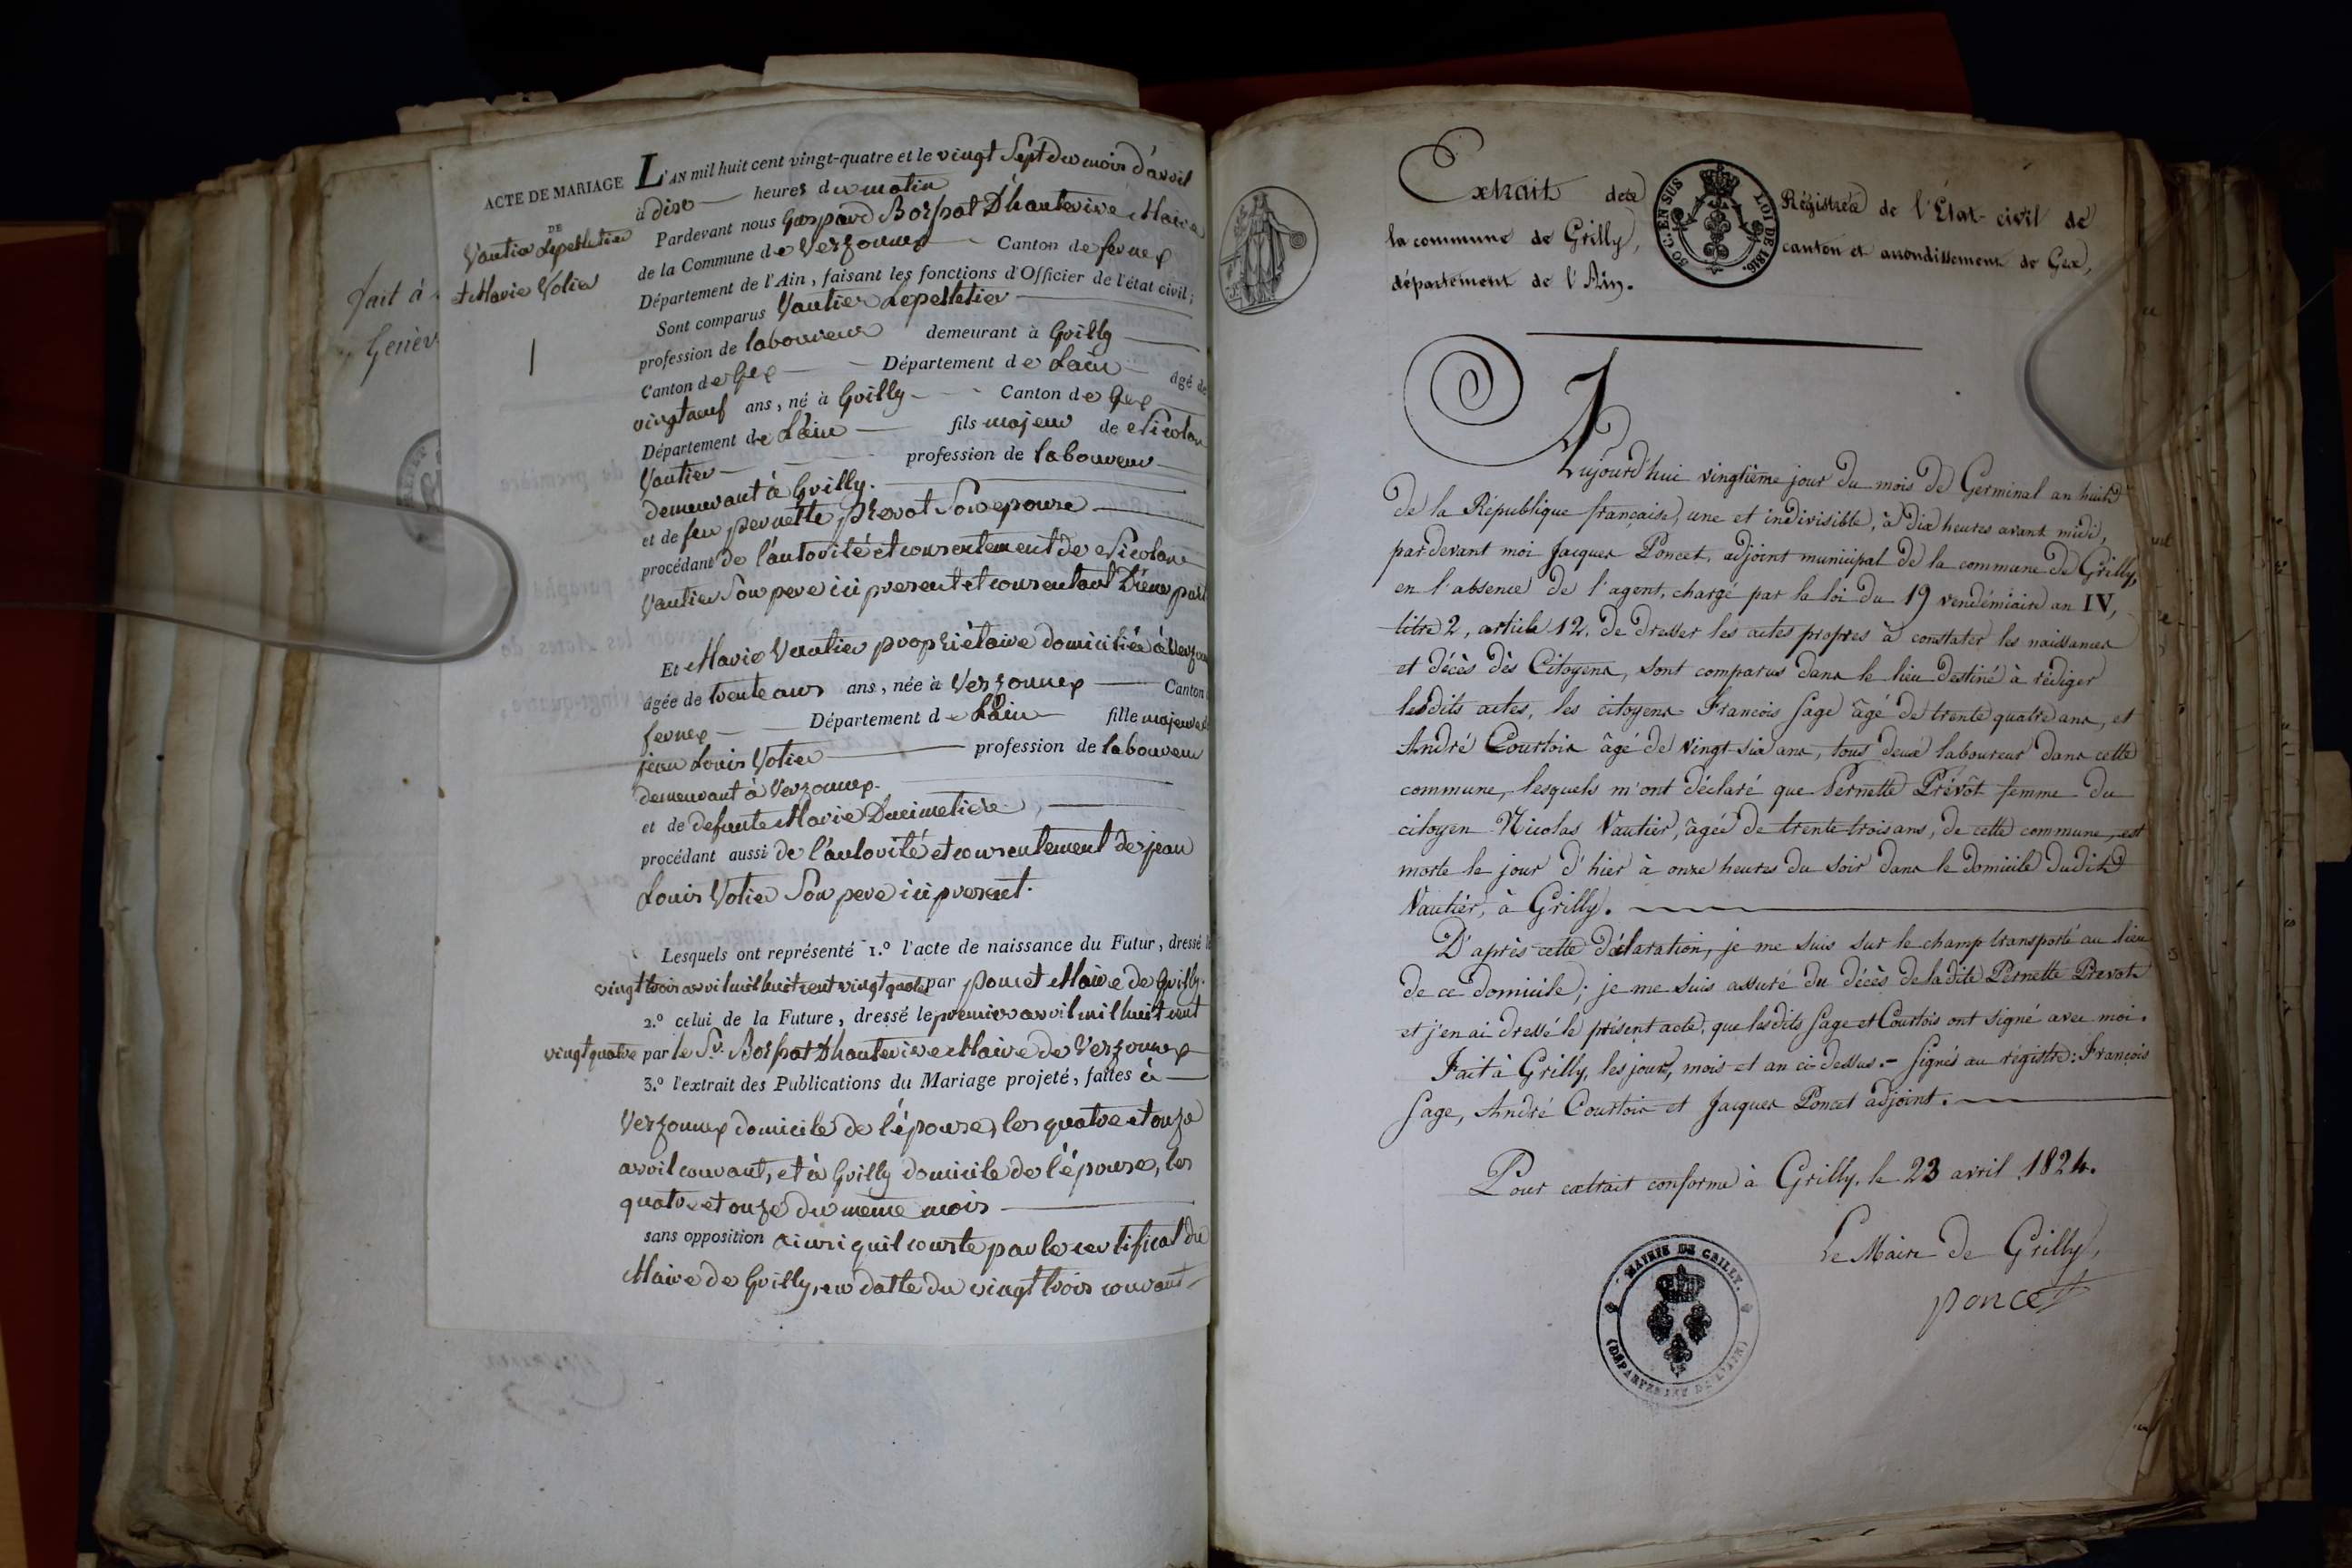 fait à
Genèv
ACTE DE MARIAGE
DE
Vautier Lepelletier
et Marie Votier
L'AN mil huit cent vingt-quatre et le vingt Sept du mois d'avril
à dix heures du matin
Pardevant nous Gaspard Borssat D'hauterive Maire
de la Commune de Verzonnex Canton de fernex
Département de l'Ain, faisant les fonctions d'Officier de l'état civil;
Sont comparus Vautier Lepelletier
profession de laboureur demeurant à Grilly
Canton de Gex Département de Lain âgé de
vingt neuf ans, né à Grilly Canton de Gex
Département de Lain fils majeur de Nicolas
Vautier profession de laboureur
demeurant à Grilly.
et de feu pernette prevot Son epouse
procédant de l'autorité et consentement de Nicolas
Vautier Son pere ici present et consentant D'une part
Et Marie Vautier propriétaire domiciliée à Verzon
âgée de trente ans ans, née à Verzonnex Canton
fernex Département de Lain fille majeure de
jean Louis Votier profession de laboureur
demeurant à Verzonnex.
et de defunte Marie Ducimetière,
procédant aussi de l'autorité et consentement de jean
Louis Votier Son pere ici present.
Lesquels ont représenté 1.º l'acte de naissance du Futur, dressé le
vingt trois avril mil huit cent vingt quatre par poncet Maire de Grilly.
2.º celui de la Future, dressé le premier avril mil huit cent
vingt quatre par le Sr. Borssat Dhauterive Maire de Verzonnex
3.º l'extrait des Publications du Mariage projeté, faites à
Verzonnex domicile de l'épouse, les quatre et onze
avril courant, et à Grilly domicile de l'épouse, les
quatre et onze du meme mois
sans opposition ainsi quil conste par le certificat du
Maire de Grilly, en datte du vingt trois courant
Extrait des Régistres de l'État-civil de
la commune de Grilly, canton et arrondissement de Gex,
département de l'Ain.
50 C. EN SUS LOI DE 1816.
Aujourd'hui vingtième jour du mois de Germinal an huit
de la République française, une et indivisible, à dix heures avant midi,
pardevant moi Jacques Poncet, adjoint municipal de la commune de Grilly,
en l'absence de l'agent, chargé par la loi du 19 vendémiaire an IV,
titre 2, article 12. de dresser les actes propres à constater les naissances
et décès dès Citoyens, sont comparus dans le lieu destiné à rédiger
lesdits actes, les citoyens Francois Sage âgé de trente quatre ans, et
André Courtois âgé de vingt six ans, tous deux laboureur dans cette
commune, lesquels m'ont déclaré que Pernette Prévôt femme du
citoyen Nicolas Vautier, âgée de trente trois ans, de cette commune, est
morte le jour d'hier à onze heures du soir dans le domicile dudit
Vautier, à Grilly.
D'après cette déclaration, je me suis sur le champ transporté au lieu
de ce domicile; je me suis assuré du décès de ladite Pernette Prevot
et j'en ai dressé le présent acte, que lesdits Sage et Courtois ont signé avec moi.
Fait à Grilly, les jour, mois et an ci-dessus. - Signés au régistre: François
Sage, André Courtois et Jacques Poncet adjoint.
Pour extrait conforme à Grilly, le 23 avril 1824.
Le Maire de Grilly,
poncet
MAIRIE DE GRILLY.
(DÉPARTEMENT DE L'AIN)